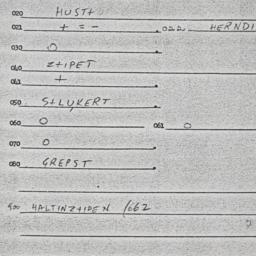 020 HUST+
021 + = - 022 HERNDI
030 0
040 Z+IPET
041 +
050 S+LUKERT
060 0 061 0
070 0
080 GREPST
400 HALTINZ+IDEN /662